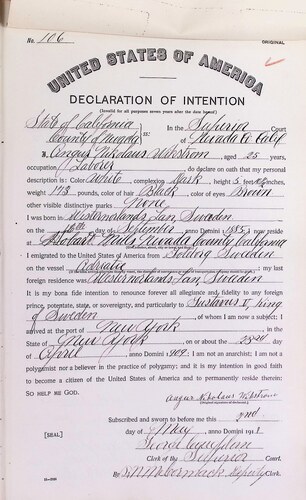 No. 106
ORIGINAL
UNITED STATES OF AMERICA
DECLARATION OF INTENTION
(Invalid for all purposes seven years after the date hereof)
State of California
County of Nevada ss: In the Superior Court
of Nevada Co Calif
I, August Nicholaus Wikstrom, aged 25 years,
occupation Laborer, do declare on oath that my personal
description is: Color White, complexion Dark, height 5 feet inches,
weight 173 pounds, color of hair Black, color of eyes Brown
other visible distinctive marks None
I was born in Westernorlands Lan, Sweden
on the day of September, anno Domini 1885; I now reside
at Hobart Mills, Nevada County, California
I emigrated to the United States of America from Sweden
on the vessel Adriatic; my last
foreign residence was Westernorlands Lan, Sweden
It is my bona fide intention to renounce forever all allegiance and fidelity to any foreign
prince, potentate, state, or sovereignty, and particularly to Gustavus V, King
of Sweden, of whom I am now a subject; I
arrived at the port of New York, in the
State of New York, on or about the 23rd day
of April, anno Domini 1909; I am not an anarchist; I am not a
polygamist nor a believer in the practice of polygamy; and it is my intention in good faith
to become a citizen of the United States of America and to permanently reside therein:
SO HELP ME GOD.
August Nicholaus Wikstrom
Subscribed and sworn to before me this 2nd
[SEAL] day of May, anno Domini 1911
Clerk of the Superior Court.
By Deputy Clerk.